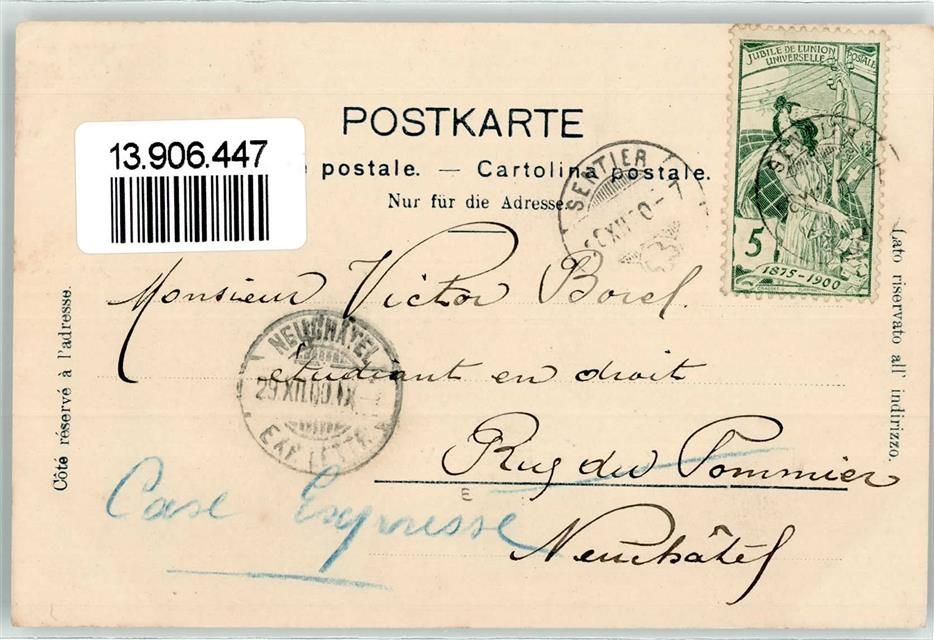 JUBILÉ DE L'UNION POSTALE
UNIVERSELLE
5
1875-1900
POSTKARTE
13.906.447
postale. — Cartolina postale.
Nur für die Adresse.
SENTIER
Monsieur Victor Borel.
NEUCHÂTEL
29.XII.00.IX
EXP. LETTR.
étudiant en droit
Rue du Pommier
Neuchâtel
Case Expresse
E
Côté réservé à l'adresse.
Lato riservato all' indirizzo.